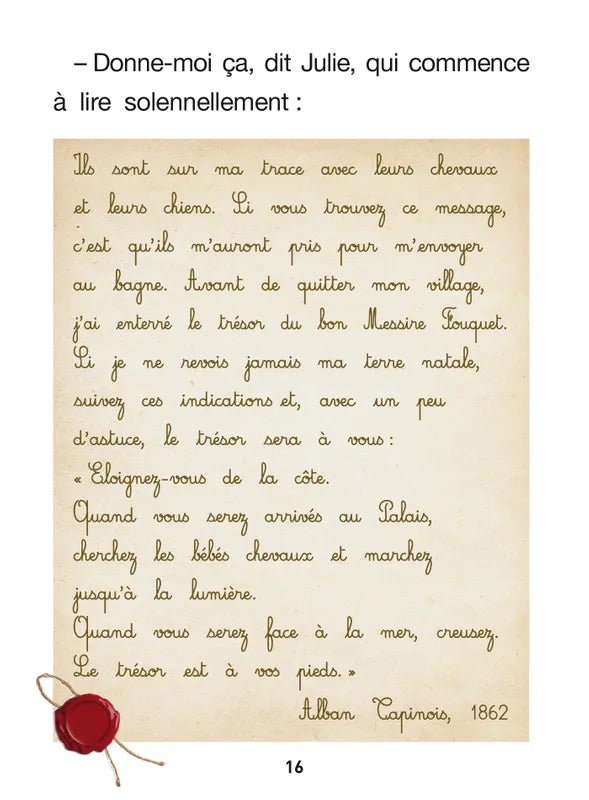 – Donne-moi ça, dit Julie, qui commence
à lire solennellement :
Ils sont sur ma trace avec leurs chevaux
et leurs chiens. Si vous trouvez ce message,
c'est qu'ils m'auront pris pour m'envoyer
au bagne. Avant de quitter mon village,
j'ai enterré le trésor du bon Messire Fouquet.
Si je ne revois jamais ma terre natale,
suivez ces indications et, avec un peu
d'astuce, le trésor sera à vous :
« Eloignez-vous de la côte.
Quand vous serez arrivés au Palais,
cherchez les bébés chevaux et marchez
jusqu'à la lumière.
Quand vous serez face à la mer, creusez.
Le trésor est à vos pieds. »
Alban Tapinois, 1862
16